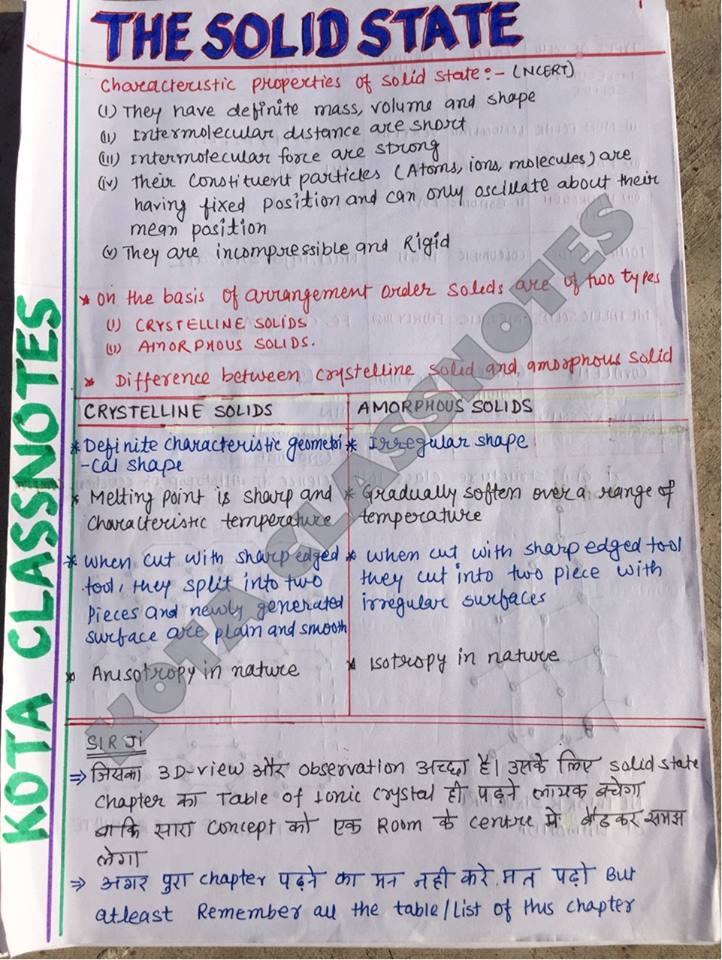 THE SOLID STATE
Characteristic properties of solid state:- (NCERT)
(i) They have definite mass, volume and shape
(ii) Intermolecular distance are short
(iii) Intermolecular force are strong
(iv) Their constituent particles (Atoms, ions, molecules) are
having fixed position and can only oscillate about their
mean position
(v) They are incompressible and Rigid
* on the basis of arrangement order solids are of two types
(i) CRYSTELLINE SOLIDS
(ii) AMORPHOUS SOLIDS.
* Difference between crystelline solid and amorphous solid
CRYSTELLINE SOLIDS
* Definite characteristic geometri
-cal shape
* Melting point is sharp and
characteristic temperature
* When cut with sharp edged
tool, they split into two
pieces and newly generated
surface are plain and smooth
* Anisotropy in nature
AMORPHOUS SOLIDS
* Irregular shape
* Gradually soften over a range of
temperature
* when cut with sharp edged tool
they cut into two piece with
irregular surfaces
* Isotropy in nature
SIR Ji
⇒ जिसका 3D-view और observation अच्छा है। उसके लिए solid state
chapter का Table of Ionic crystal ही पढ़ने लायक बचेगा
बाकि सारा concept को एक Room के centre में बैठकर समझ
लेगा
⇒ अगर पुरा chapter पढ़ने का मन नही करे मत पढ़ो But
atleast Remember all the table/list of this chapter
KOTA CLASSNOTES
KOTA CLASSNOTES